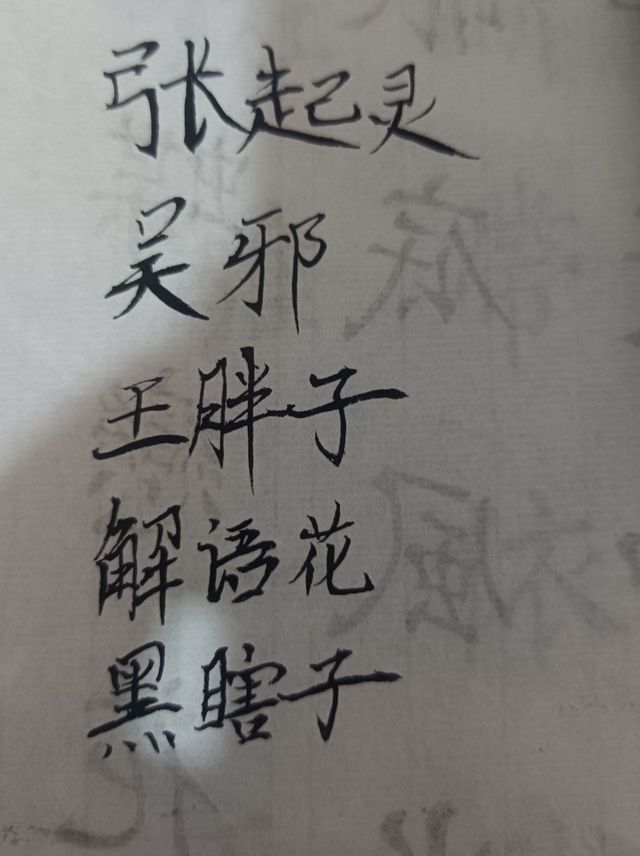 张起灵
吴邪
王胖子
解语花
黑瞎子